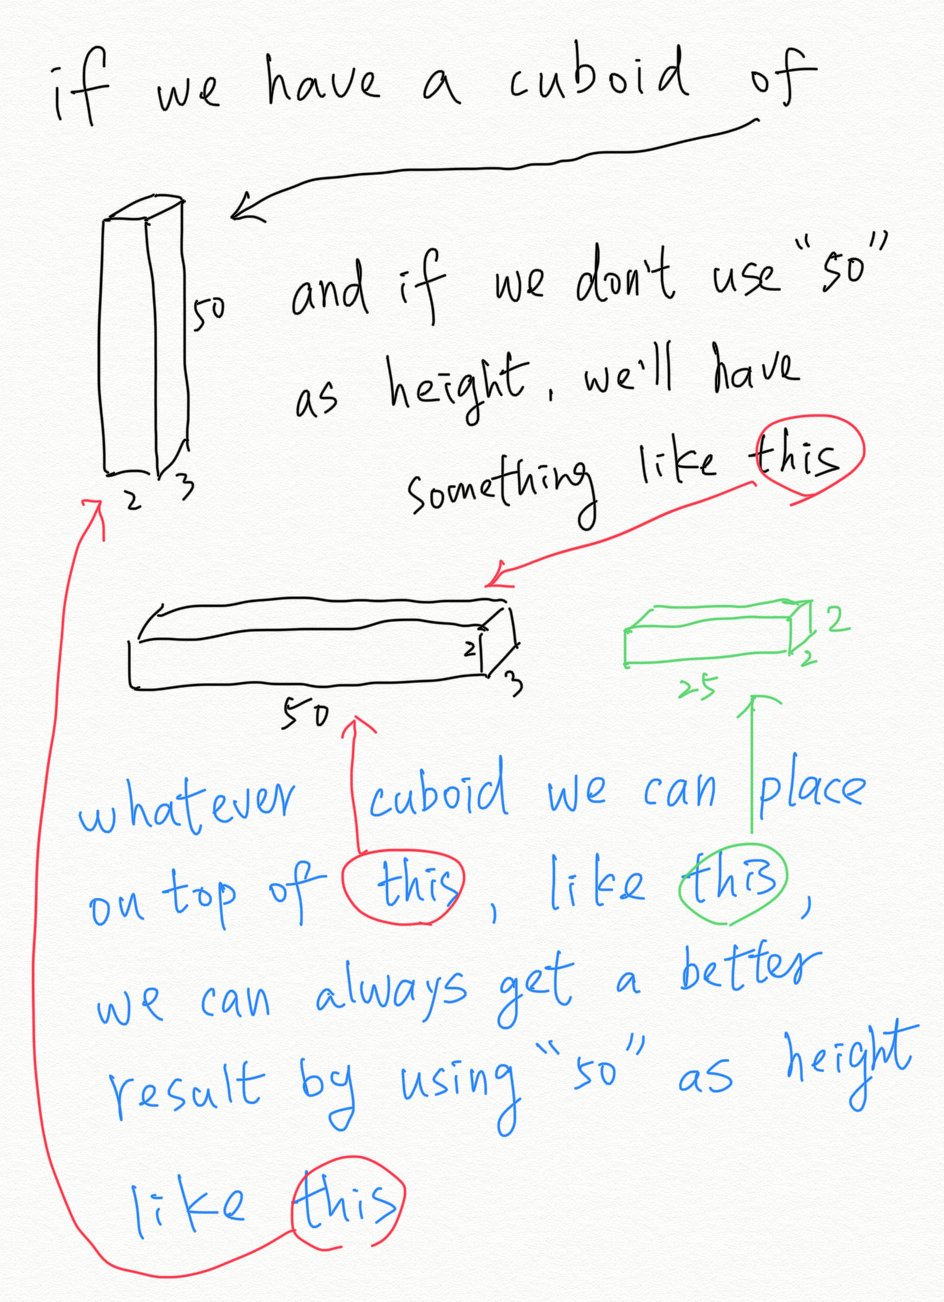 if we have a cuboid of
50
and if we don't use "50"
as height, we'll have
2 3
something like this
2
3
50
2
2
25
whatever cuboid we can place
on top of this, like this,
we can always get a better
result by using "50" as height
like this